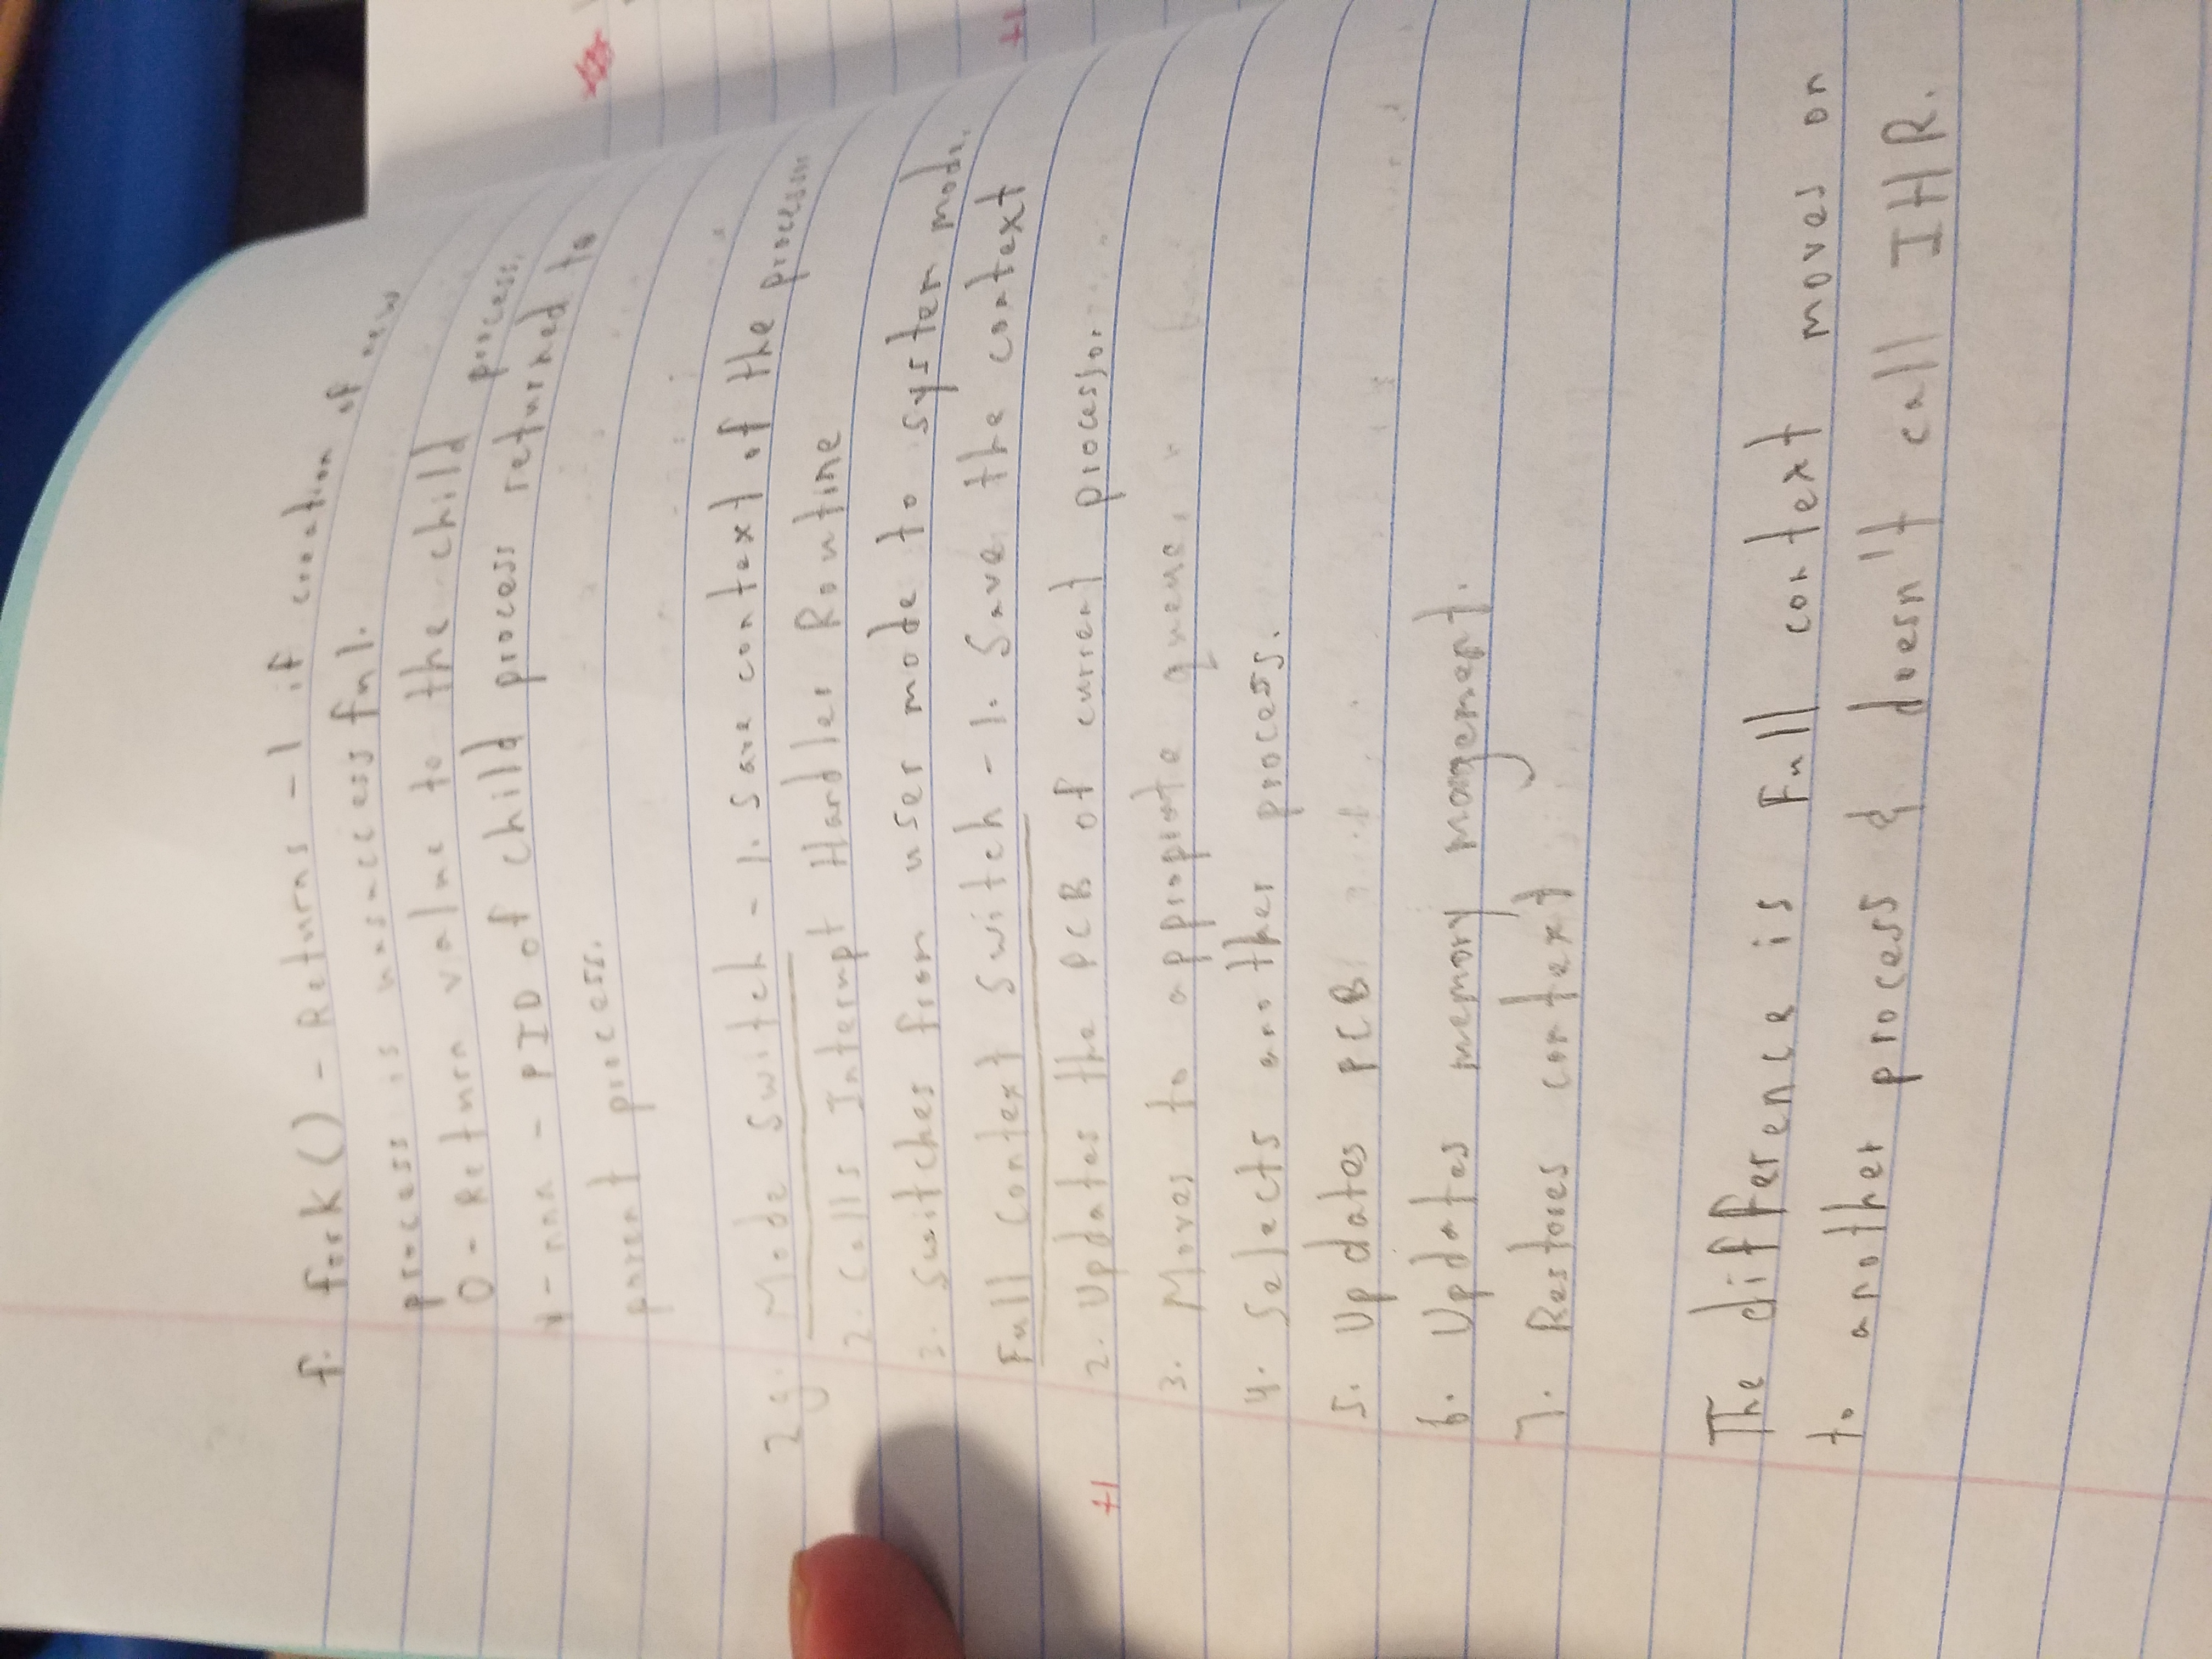 f. fork() - Returns -1 if creation of new
process is unsuccessful.
0 - Return value to the child process.
- nnn - PID of child process returned to
parent process.
2g. Mode Switch - 1. Save context of the processor
2. Calls Interrupt Handler Routine
3. Switches from user mode to system mode.
Full Context Switch - 1. Save the context
+1 2. Updates the PCB of current processor
3. Moves to appropiate queue.
4. Selects another process.
5. Updates PCB
6. Updates memory mangement.
7. Restores context
The difference is Full context moves on
to another process & doesn't call IHR.
+1